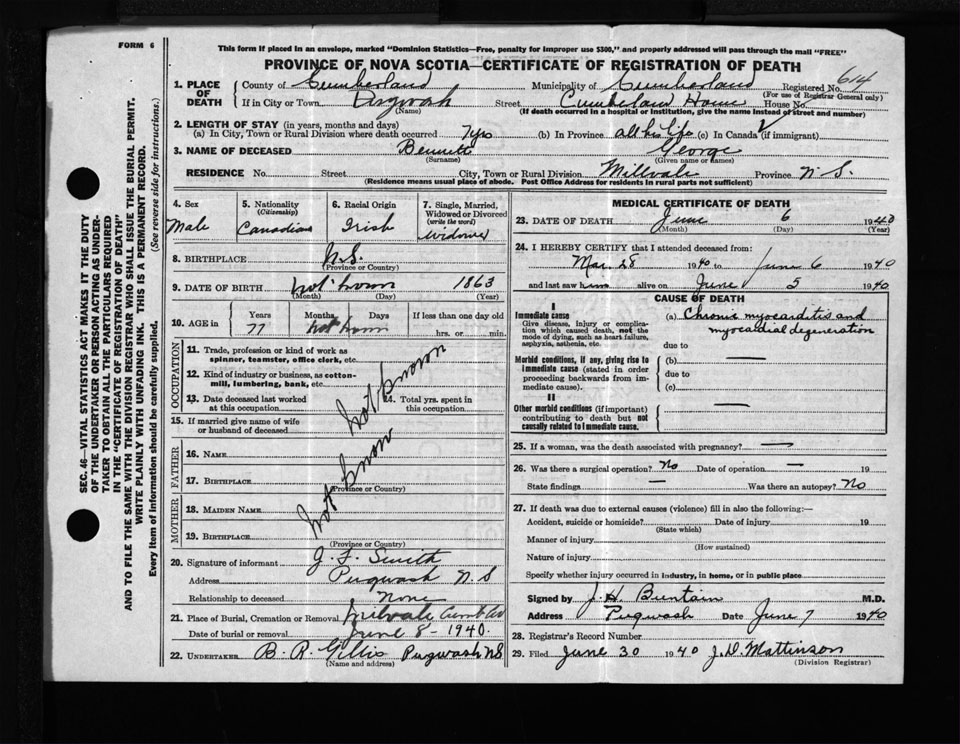 FORM 6
This form if placed in an envelope, marked "Dominion Statistics—Free, penalty for improper use $300," and properly addressed will pass through the mail "FREE"
PROVINCE OF NOVA SCOTIA—CERTIFICATE OF REGISTRATION OF DEATH
SEC. 46—VITAL STATISTICS ACT MAKES IT THE DUTY
OF THE UNDERTAKER OR PERSON ACTING AS UNDER-
TAKER TO OBTAIN ALL THE PARTICULARS REQUIRED
IN THE "CERTIFICATE OF REGISTRATION OF DEATH"
AND TO FILE THE SAME WITH THE DIVISION REGISTRAR WHO SHALL ISSUE THE BURIAL PERMIT.
WRITE PLAINLY WITH UNFADING INK. THIS IS A PERMANENT RECORD.
Every item of information should be carefully supplied. (See reverse side for instructions.)
1. PLACE OF DEATH County of Cumberland Municipality of Cumberland Registered No. 614
(For use of Registrar General only)
If in City or Town Pugwash Street Cumberland Home House No.
(Name) (If death occurred in a hospital or institution, give the name instead of street and number)
2. LENGTH OF STAY (in years, months and days)
(a) In City, Town or Rural Division where death occurred 7 yrs (b) In Province all his life (c) In Canada (if immigrant)
3. NAME OF DECEASED Bennett George
(Surname) (Given name or names)
RESIDENCE No. Street City, Town or Rural Division Millvale Province N.S.
(Residence means usual place of abode. Post Office Address for residents in rural parts not sufficient)
4. Sex Male
5. Nationality (Citizenship) Canadian
6. Racial Origin Irish
7. Single, Married, Widowed or Divorced (write the word) Widower
8. BIRTHPLACE N.S.
(Province or Country)
9. DATE OF BIRTH not known 1863
(Month) (Day) (Year)
10. AGE in Years Months Days If less than one day old
77 not known hrs. or min.
OCCUPATION
11. Trade, profession or kind of work as spinner, teamster, office clerk, etc.
12. Kind of industry or business, as cotton-mill, lumbering, bank, etc.
13. Date deceased last worked at this occupation 14. Total yrs. spent in this occupation
not known
15. If married give name of wife or husband of deceased
FATHER
16. Name
17. Birthplace
(Province or Country)
not known
MOTHER
18. Maiden Name
19. Birthplace
(Province or Country)
20. Signature of informant J. F. Smith
Address Pugwash N.S
Relationship to deceased None
21. Place of Burial, Cremation or Removal Millvale Cumb Co
Date of burial or removal June 8 - 1940.
22. Undertaker B. R. Gillis Pugwash NS
(Name and address)
MEDICAL CERTIFICATE OF DEATH
23. DATE OF DEATH June 6 1940
(Month) (Day) (Year)
24. I HEREBY CERTIFY that I attended deceased from:
Mar. 28 1940 to June 6 1940
and last saw him alive on June 5 1940
CAUSE OF DEATH
I
Immediate cause
Give disease, injury or complication which caused death, not the mode of dying, such as heart failure, asphyxia, asthenia, etc.
(a) Chronic myocarditis and
myocardial degeneration
due to
Morbid conditions, if any, giving rise to immediate cause (stated in order proceeding backwards from immediate cause).
(b)
due to
(c)
II
Other morbid conditions (if important) contributing to death but not causally related to immediate cause.
25. If a woman, was the death associated with pregnancy? —
26. Was there a surgical operation? No Date of operation — 19
State findings — Was there an autopsy? No
27. If death was due to external causes (violence) fill in also the following:—
Accident, suicide or homicide? Date of injury 19
(State which)
Manner of injury
(How sustained)
Nature of injury
Specify whether injury occurred in industry, in home, or in public place
Signed by J. H. Buntain M.D.
Address Pugwash Date June 7 1940
28. Registrar's Record Number
29. Filed June 30 1940 J. D. Mattinson
(Division Registrar)